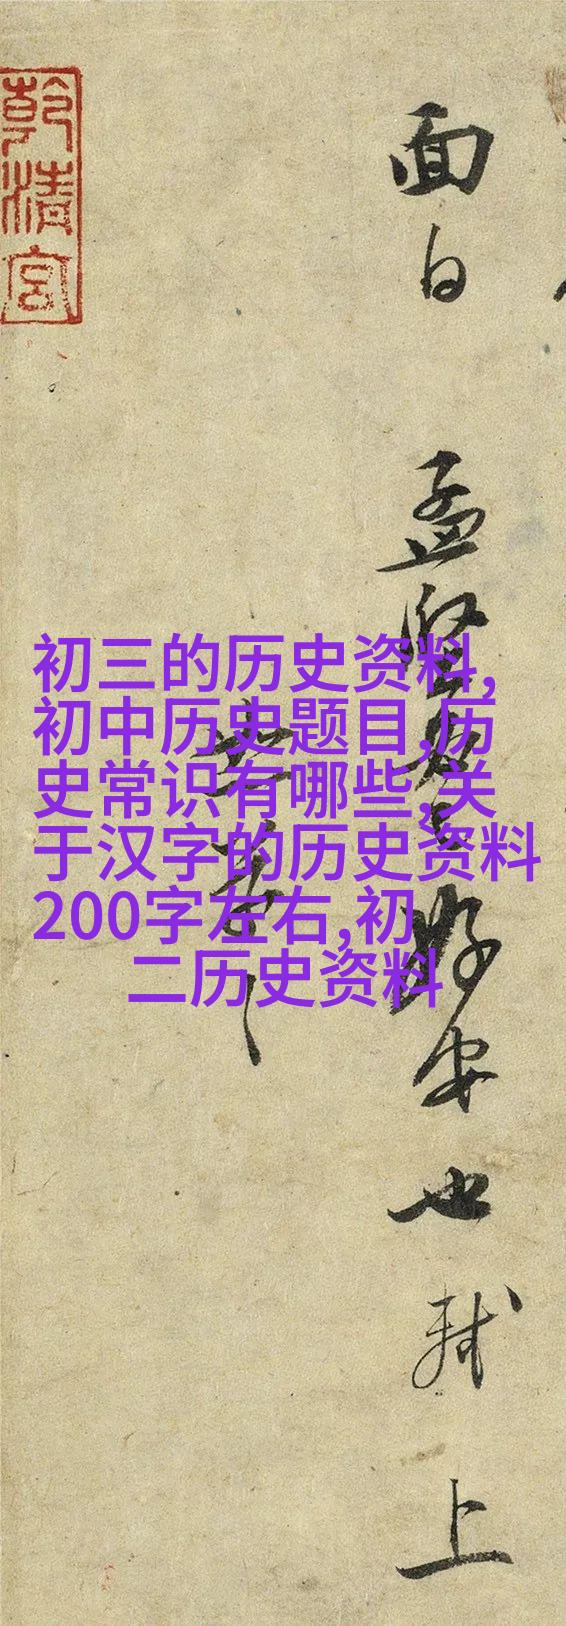 面白 孟坚 安也 轼 上
乾清宫
初三的历史资料,
初中历史题目,历
史常识有哪些,关
于汉字的历史资料
200字左右,初
二历史资料